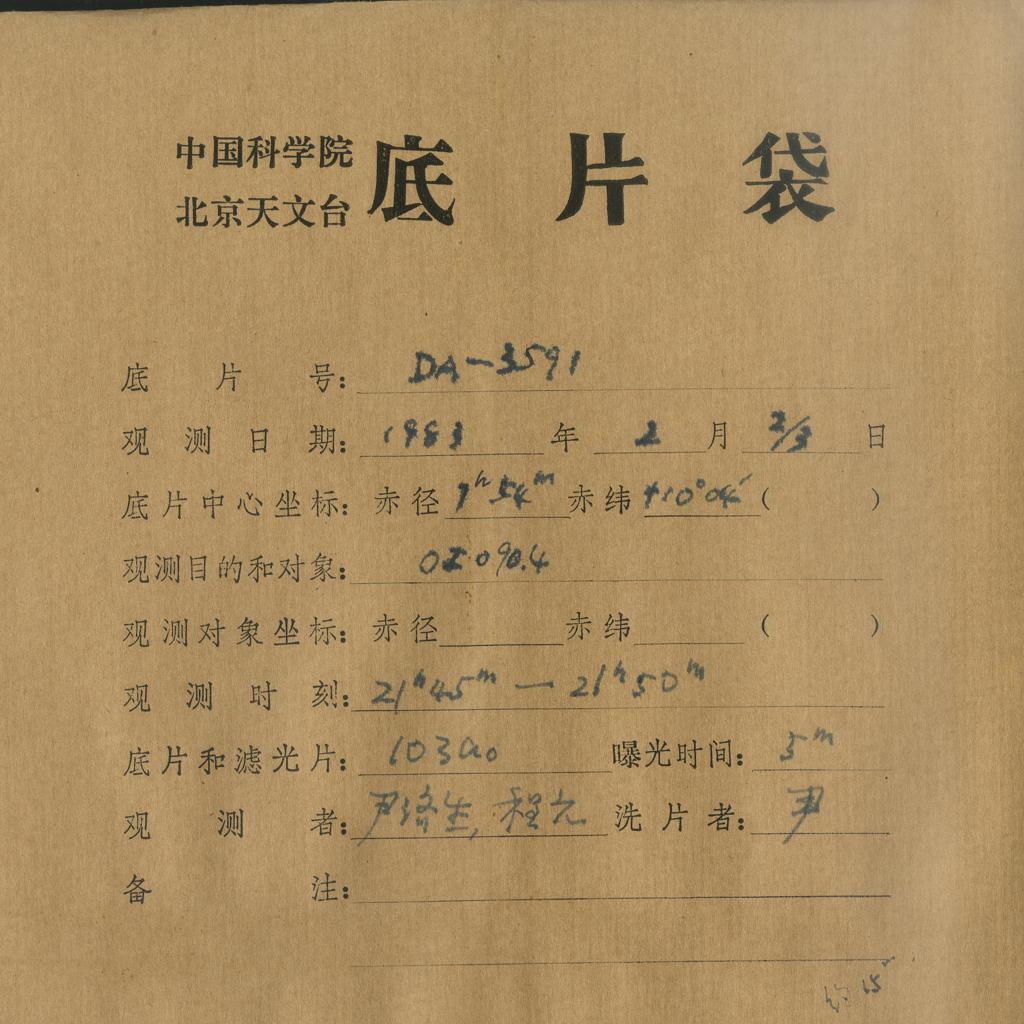 中国科学院
北京天文台
底片袋
底片号: DA-3591
观测日期: 1983年2月2/3日
底片中心坐标: 赤径 7ʰ54ᵐ 赤纬 +10°04′ ( )
观测目的和对象: OI 090.4
观测对象坐标: 赤径 赤纬 ( )
观测时刻: 21ʰ45ᵐ — 21ʰ50ᵐ
底片和滤光片: 103aO 曝光时间: 5ᵐ
观测者: 尹 生, 程 洗片者: 尹
备注:
15